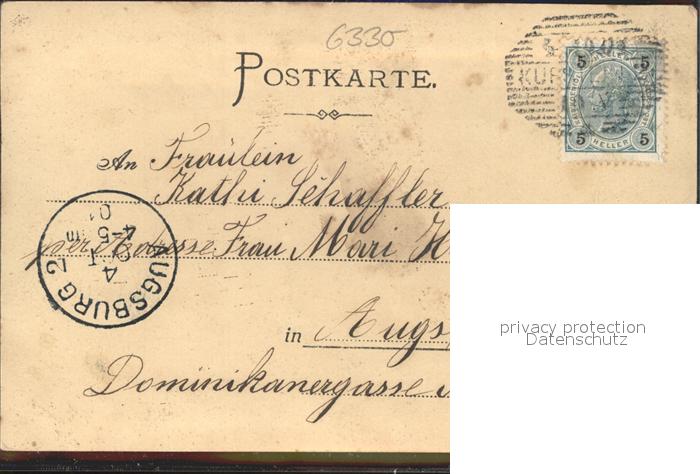 6330
POSTKARTE.
5 5
5 HELLER 5
An Fräulein
Kathi Schäffler
per Adresse Frau Mari H
in Augs
Dominikanergasse
AUGSBURG 2
4
4-5
01
privacy protection
Datenschutz